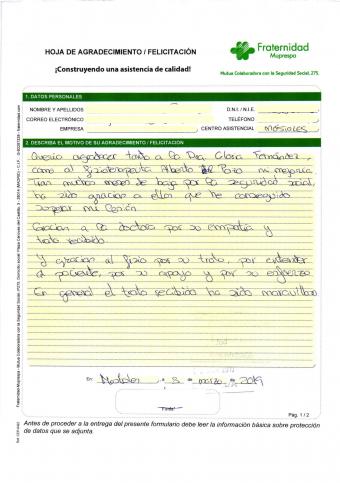 HOJA DE AGRADECIMIENTO / FELICITACIÓN
¡Construyendo una asistencia de calidad!
Fraternidad
Muprespa
Mutua Colaboradora con la Seguridad Social, 275.
1. DATOS PERSONALES
NOMBRE Y APELLIDOS
D.N.I. / N.I.E.
CORREO ELECTRÓNICO
TELÉFONO
EMPRESA
CENTRO ASISTENCIAL MÓSTOLES
2. DESCRIBA EL MOTIVO DE SU AGRADECIMIENTO / FELICITACIÓN
Quería agradecer tanto a la Dra. Clara Fernández,
como al fisioterapeuta Alberto Pozo mi mejoría.
Tras muchos meses de baja por la seguridad social,
ha sido gracias a ellos que he conseguido
superar mi lesión
Gracias a la doctora por su empatía y
trato recibido
Y gracias al fisio por su trato, por entender
al paciente, por su apoyo y por su esfuerzo
En general el trato recibido ha sido maravilloso
En Móstoles, a 5 de marzo de 2019
Firma
Pág. 1 / 2
Antes de proceder a la entrega del presente formulario debe leer la información básica sobre protección
de datos que se adjunta.